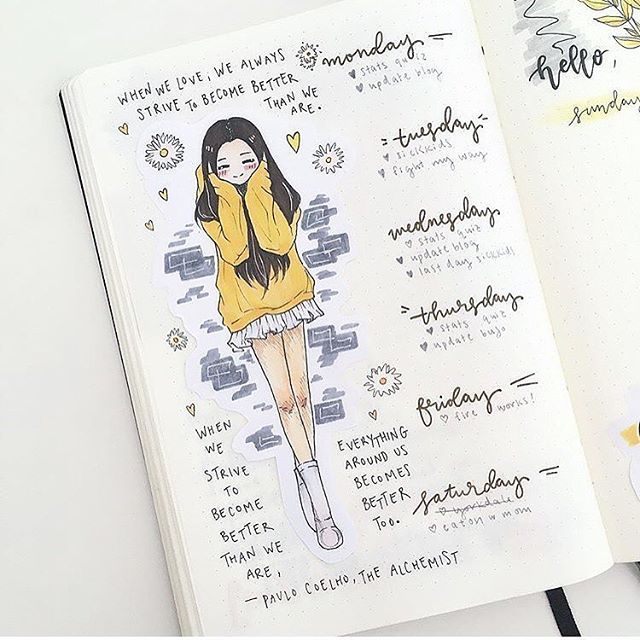 WHEN WE LOVE, WE ALWAYS
STRIVE TO BECOME BETTER
THAN WE
ARE.
WHEN
WE
STRIVE
TO
BECOME
BETTER
THAN WE
ARE,
EVERYTHING
AROUND US
BECOMES
BETTER
TOO.
— PAULO COELHO, THE ALCHEMIST
monday
stats quiz
update blog
tuesday
sickkids
fight my way
wednesday
stats quiz
update blog
last day sickkids
thursday
stats quiz
update bujo
friday
fire works!
saturday
yorkdale
eaton w mom
hello,
sunday